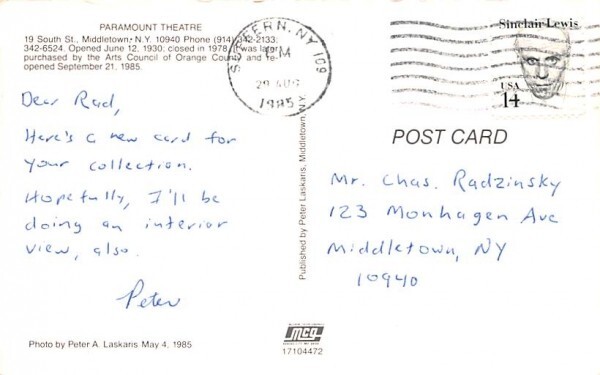 PARAMOUNT THEATRE
19 South St., Middletown, N.Y. 10940 Phone (914) 342-2133;
342-6524. Opened June 12, 1930; closed in 1978, it was later
purchased by the Arts Council of Orange County and re-
opened September 21, 1985.
SUFFERN, NY 109
PM
29 AUG
1985
Sinclair Lewis
USA
14
Dear Rad,
Here's a new card for
your collection.
Hopefully, I'll be
doing an interior
view, also.
Peter
Published by Peter Laskaris, Middletown, N.Y.
POST CARD
Mr. Chas. Radzinsky
123 Monhagen Ave
Middletown, NY
10940
Photo by Peter A. Laskaris May 4, 1985
mcg
17104472